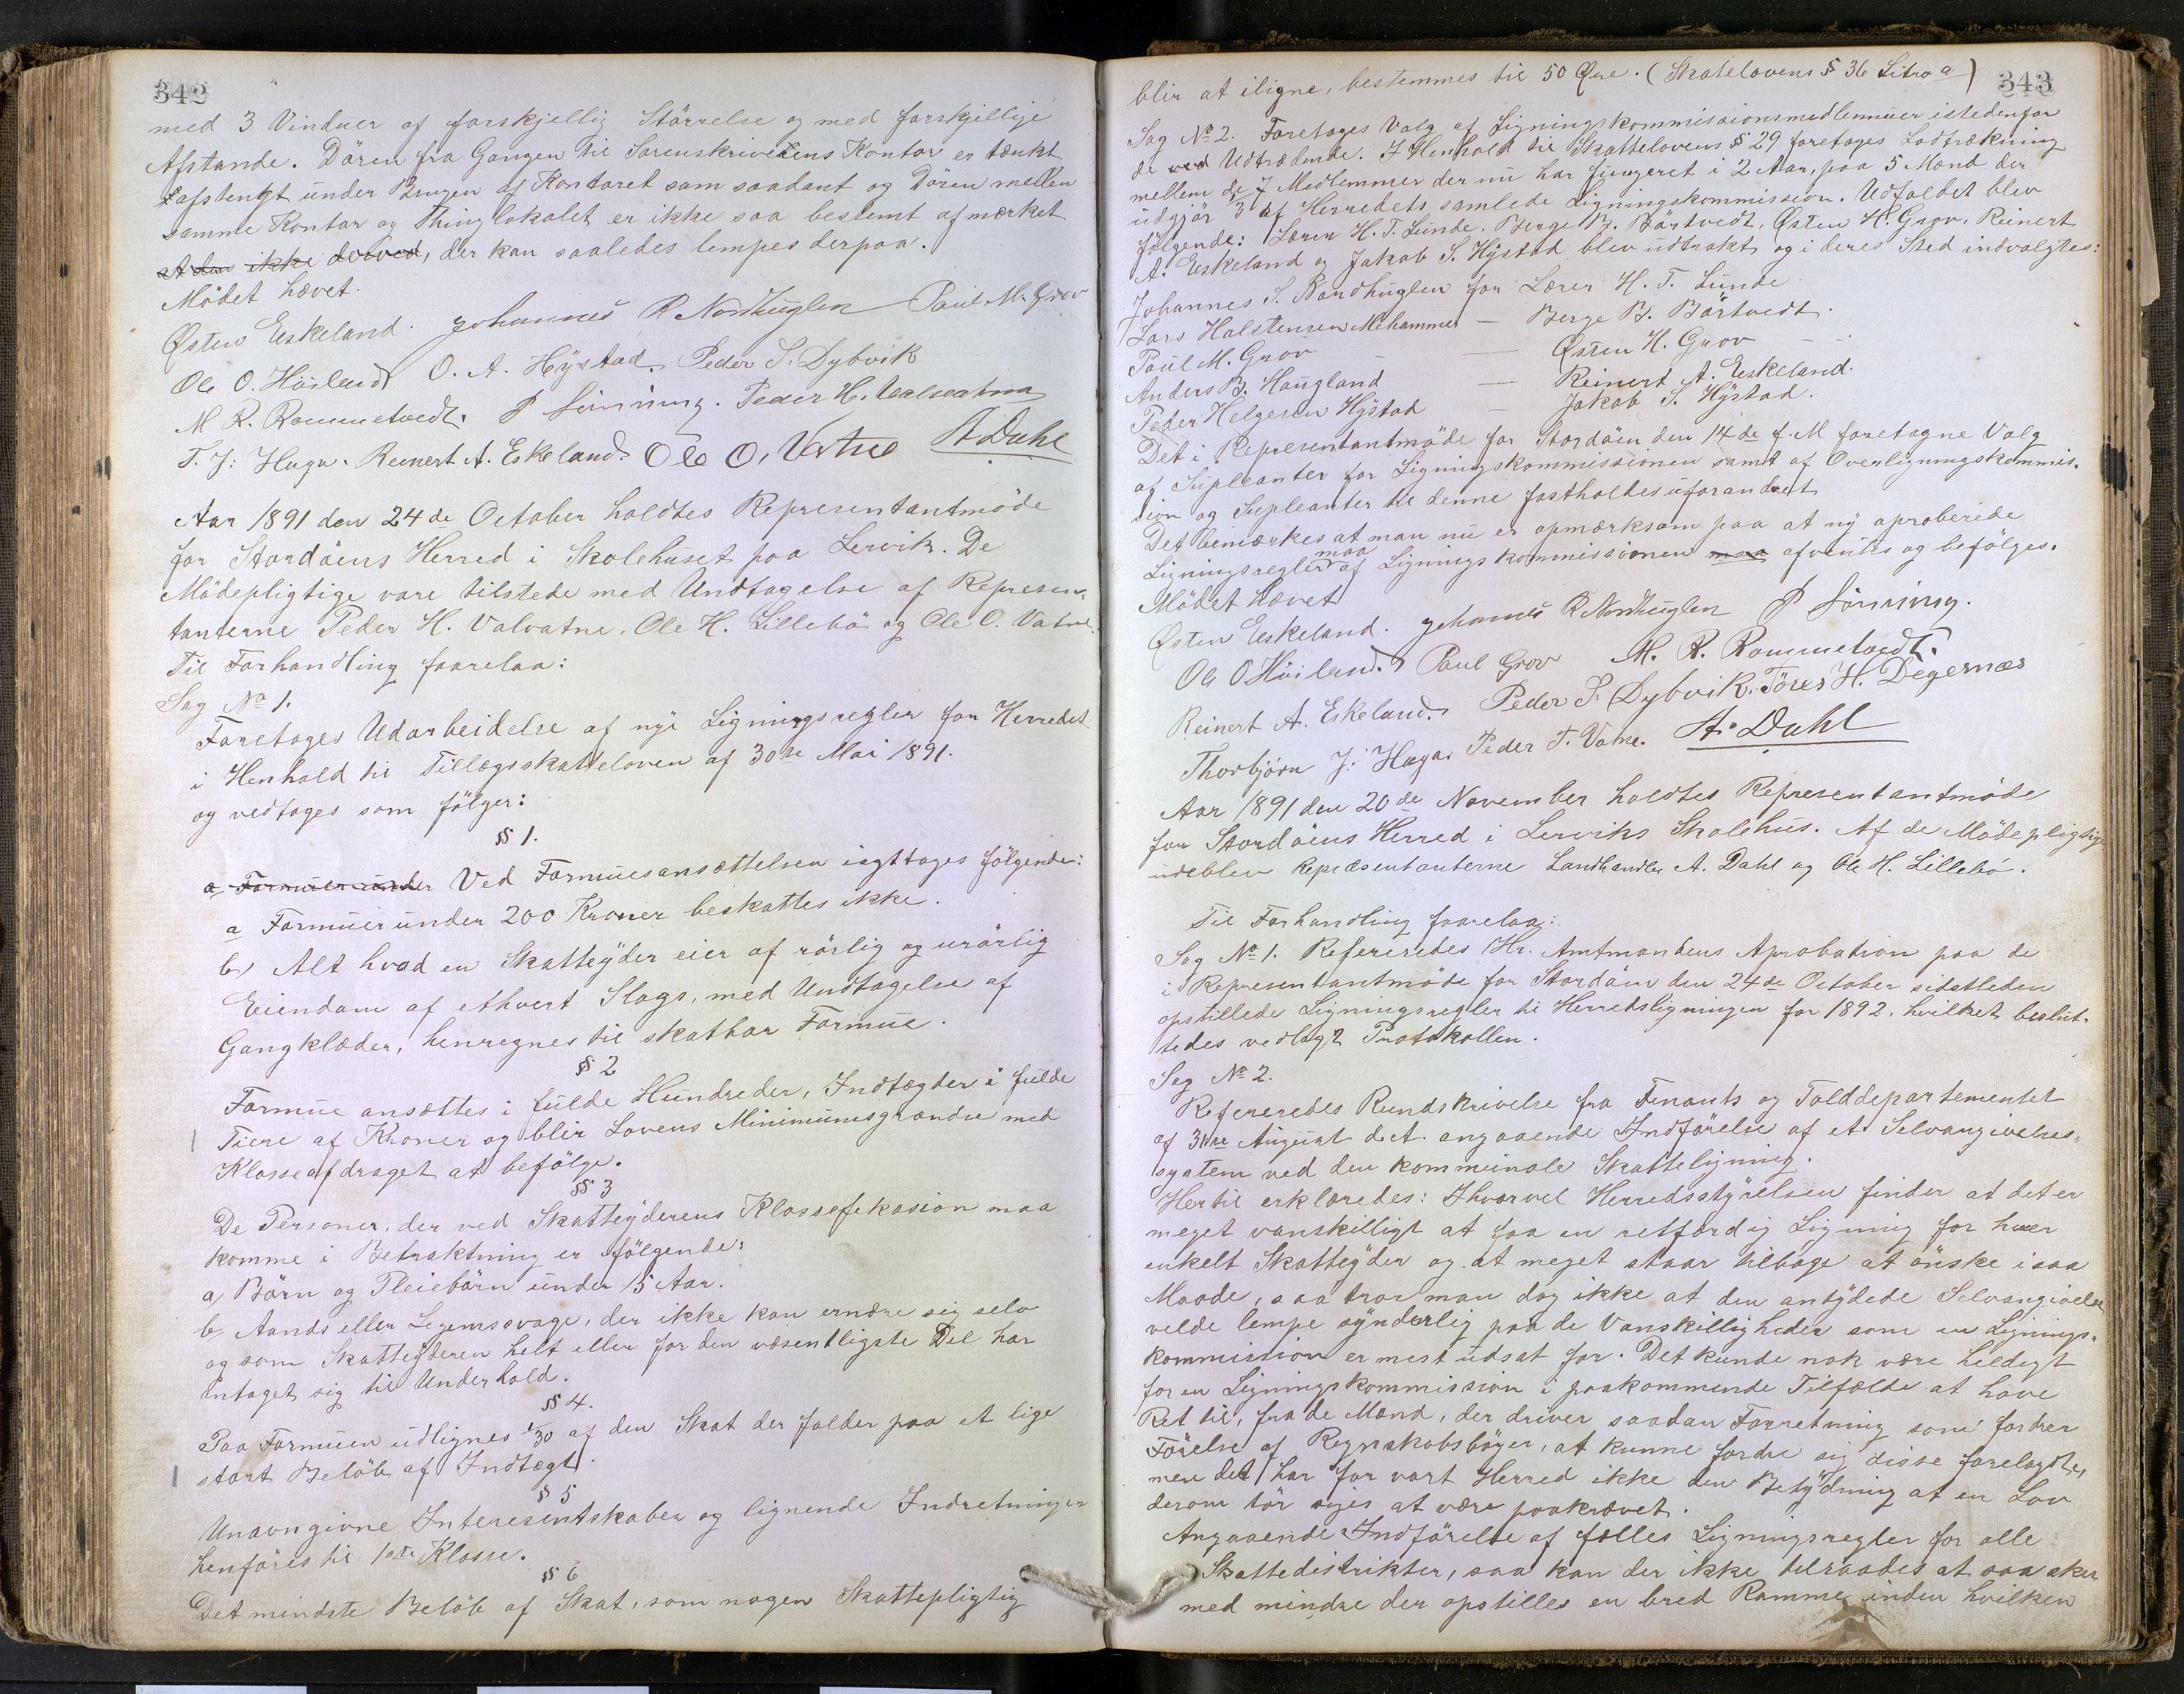 342
med 3 Vinduer af forskjellig Större​lse og med forskjellige
Afstande. Dören fra Gangen til Sorenskriverens Kontor er tænkt
afstengt under Brugen af Kontoret som saadant og Dören mellem
samme Kontor og Thinglokalet er ikke saa bestemt afmærket
at den ikke derved, der kan saaledes lempes derpaa.
Mödet hævet.
Østen Eskeland. Johannes R Nordhuglen Paul M. Grov
Ole O. Höiland O. A. Hÿstad. Peder S. Dybvik
M. R. Rommetvedt. P Lönning. Peder H. Valvatna
T. J: Haga. Reinert A. Eskeland. Ole O. Vatne A Dahl
Aar 1891 den 24de October holdtes Representantmöde
for Stordöens Herred i Skolehuset paa Lervik. De
Mödepligtige vare tilstede med Undtagelse af Represen-
tanterne Peder H. Valvatne, Ole H. Lillebö og Ole O. Vatne.
Til Forhandling foorelaa:
Sag No 1.
Foretoges Udarbeidelse af nye Ligningsregler for Herredet
i Henhold til Tillægsskatteloven af 30te Mai 1891.
og vedtoges som fölger:
§ 1.
a Formuer under Ved Formuesansættelsen iagttages fölgende:
a Formuer under 200 Kroner beskattes ikke.
b) Alt hvad en Skatteÿder eier af rörlig og urörlig
Eiendom af ethvert Slags, med Undtagelse af
Gangklæder, henregnes til skatbar Formue.
§ 2
Formue ansættes i fulde Hundreder, Indtægder i fulde
Tiere af Kroner og blir Lovens Minimumsgrændse med
Klasseafdraget at befölge.
§ 3
De Personer, der ved Skatteÿderens Klassefikasion maa
komme i Betraktning er fölgende:
a, Börn og Pleiebörn under 15 Aar.
b, Aands eller Legemssvage, der ikke kan ernære sig selv
og som Skatteÿderen helt eller for den væsentligste Del har
antaget sig til Underhold.
§ 4.
Paa Formuen udlignes 1/30 af den Skat der falder paa et lige
stort Belöb af Indtægt.
§ 5
Unavngivne Interesentskaber og lignende Indretninger
henföres til 1ste Klasse.
§ 6
Det mindste Belöb af Skat, som nogen Skattepligtig
343
blir at iligne, bestemmes til 50 Øre. (Skatelovens § 36 Litra a)
Sag No 2. Foretoges Valg af Ligningskommissionsmedlemmer istedenfor
de ved Udtrædende. I Henhold til Skattelovens § 29 foretoges Lodtrækning
mellem de 7 Medlemmer der nu har fungeret i 2 Aar, paa 5 Mand der
udgjör 1/3 af Herredets samlede Ligningskommission. Udfaldet blev
fölgende: Lærer H. T. Lunde, Berge B. Börtvedt, Østen H. Grov, Reinert
A. Eskeland og Jakob S. Hÿstad blev udtrakt og i deres Sted indvalgtes:
Johannes S. Nordhuglen for Lærer H. T. Lunde
Lars Halstensen Mehammer — Berge B. Börtvedt.
Paul M. Grov — Østen H. Grov
Anders B. Haugland — Reinert A. Eskeland.
Peder Helgesen Hÿstad — Jakob S. Hÿstad.
Det i Representantmöde for Stordöen den 14de f. M foretagne Valg
af Supleanter for Ligningskommissionen samt af Overligningskommis-
sion og Supleanter til denne fastholdes uforandret
Det bemærkes at man nu er opmærksom paa at ny aproberede
Ligningsregler maa af Ligningskommissionen maa afventes og befölges.
Mödet hævet
Østen Eskeland. Johannes R Nordhuglen P Lönning.
Ole O Höiland. Paul Grov M. R. Rommetvedt.
Reinert A. Eskeland. Peder S. Dybvik. Töres H. Degernæs
Thorbjörn J: Haga. Peder T. Vatne. A. Dahl
Aar 1891 den 20de November holdtes Representantmöde
for Stordöens Herred i Lerviks Skolehus. Af de Mödepligtige
udeblev Repræsentanterne Landhandler A. Dahl og Ole H. Lillebö.
Til Forhandling foorelaa:
Sag No 1. Refereredes Hr. Amtmandens Aprobation paa de
i Representantmöde for Stordöen den 24de October sidstleden
opstillede Ligningsregler til Herredsligningen for 1892, hvilket beslut-
tedes vedlagt Protokollen.
Sag No 2.
Refereredes Rundskrivelse fra Finants og Tolddepartementet
af 31te August d. A. angaaende Indförelse af et Selvangivelses-
system ved den kommunale Skatteligning.
Hertil erklæredes: Ihvorvel Herredsstÿrelsen finder at det er
meget vanskelligt at faa en retfærdig Ligning for hver
enkelt Skatteÿder og at meget staar tilbage at önske i saa
Maade, saa tror man dog ikke at den antÿdede Selvangivelse
vilde lempe sÿnderlig paa de Vanskelligheder som en Lignings-
kommission er mest udsat for. Det kunde nok være heldigt
for en Ligningskommission i paakommende Tilfælde at have
Ret til, fra de Mænd, der driver saadan Forretning som fordrer
Förelse af Regnskabsböger, at kunne fordre sig disse forelagte,
men det har for vort Herred ikke den Betÿdning at en Lov
derom tör siges at være paakrævet.
Angaaende Indförelse af fælles Ligningsregler for alle
Skattedistrikter, saa kan der ikke tilraades at saa sker
med mindre der opstilles en bred Ramme inden hvilken